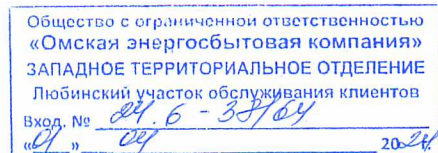 Общество с ограниченной ответственностью
«Омская энергосбытовая компания»
ЗАПАДНОЕ ТЕРРИТОРИАЛЬНОЕ ОТДЕЛЕНИЕ
Любинский участок обслуживания клиентов
Вход. № 24.6-38/64
«01» 04 2024